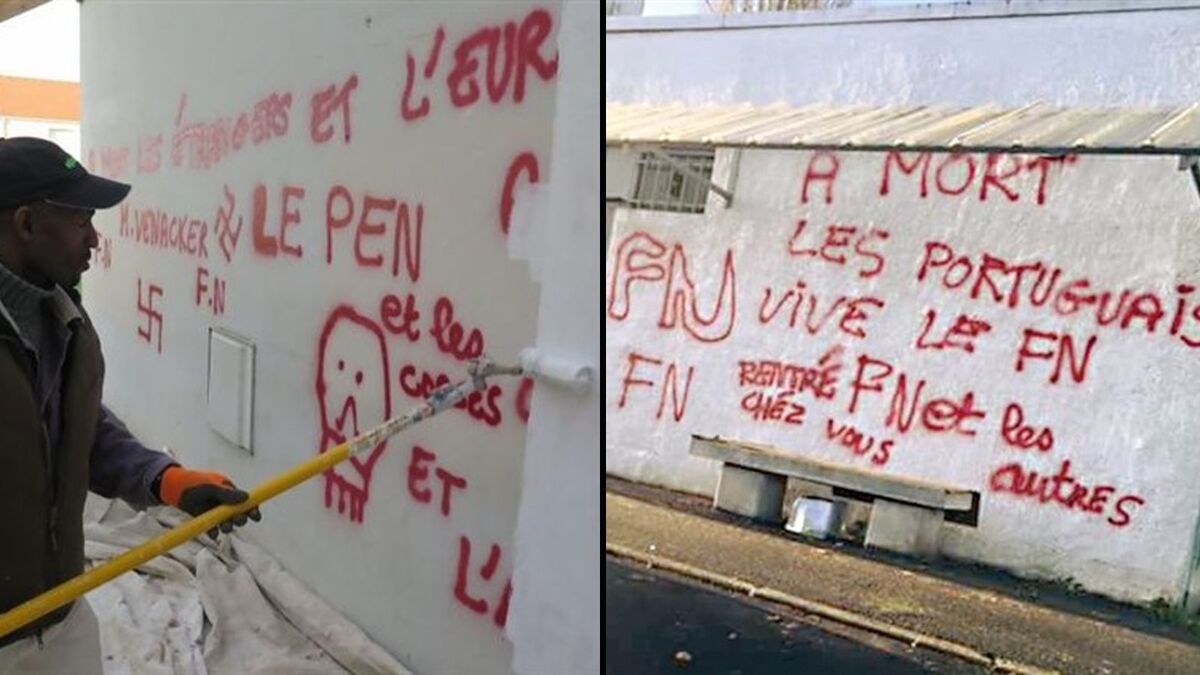 L'EUR
A MORT LES ÉTRANGERS ET
LE PEN
F.N
F.N
et les
ET
L'
A MORT
LES PORTUGUAIS
FN VIVE LE FN
FN RENTRÉ FN et les
CHÉZ VOUS autres